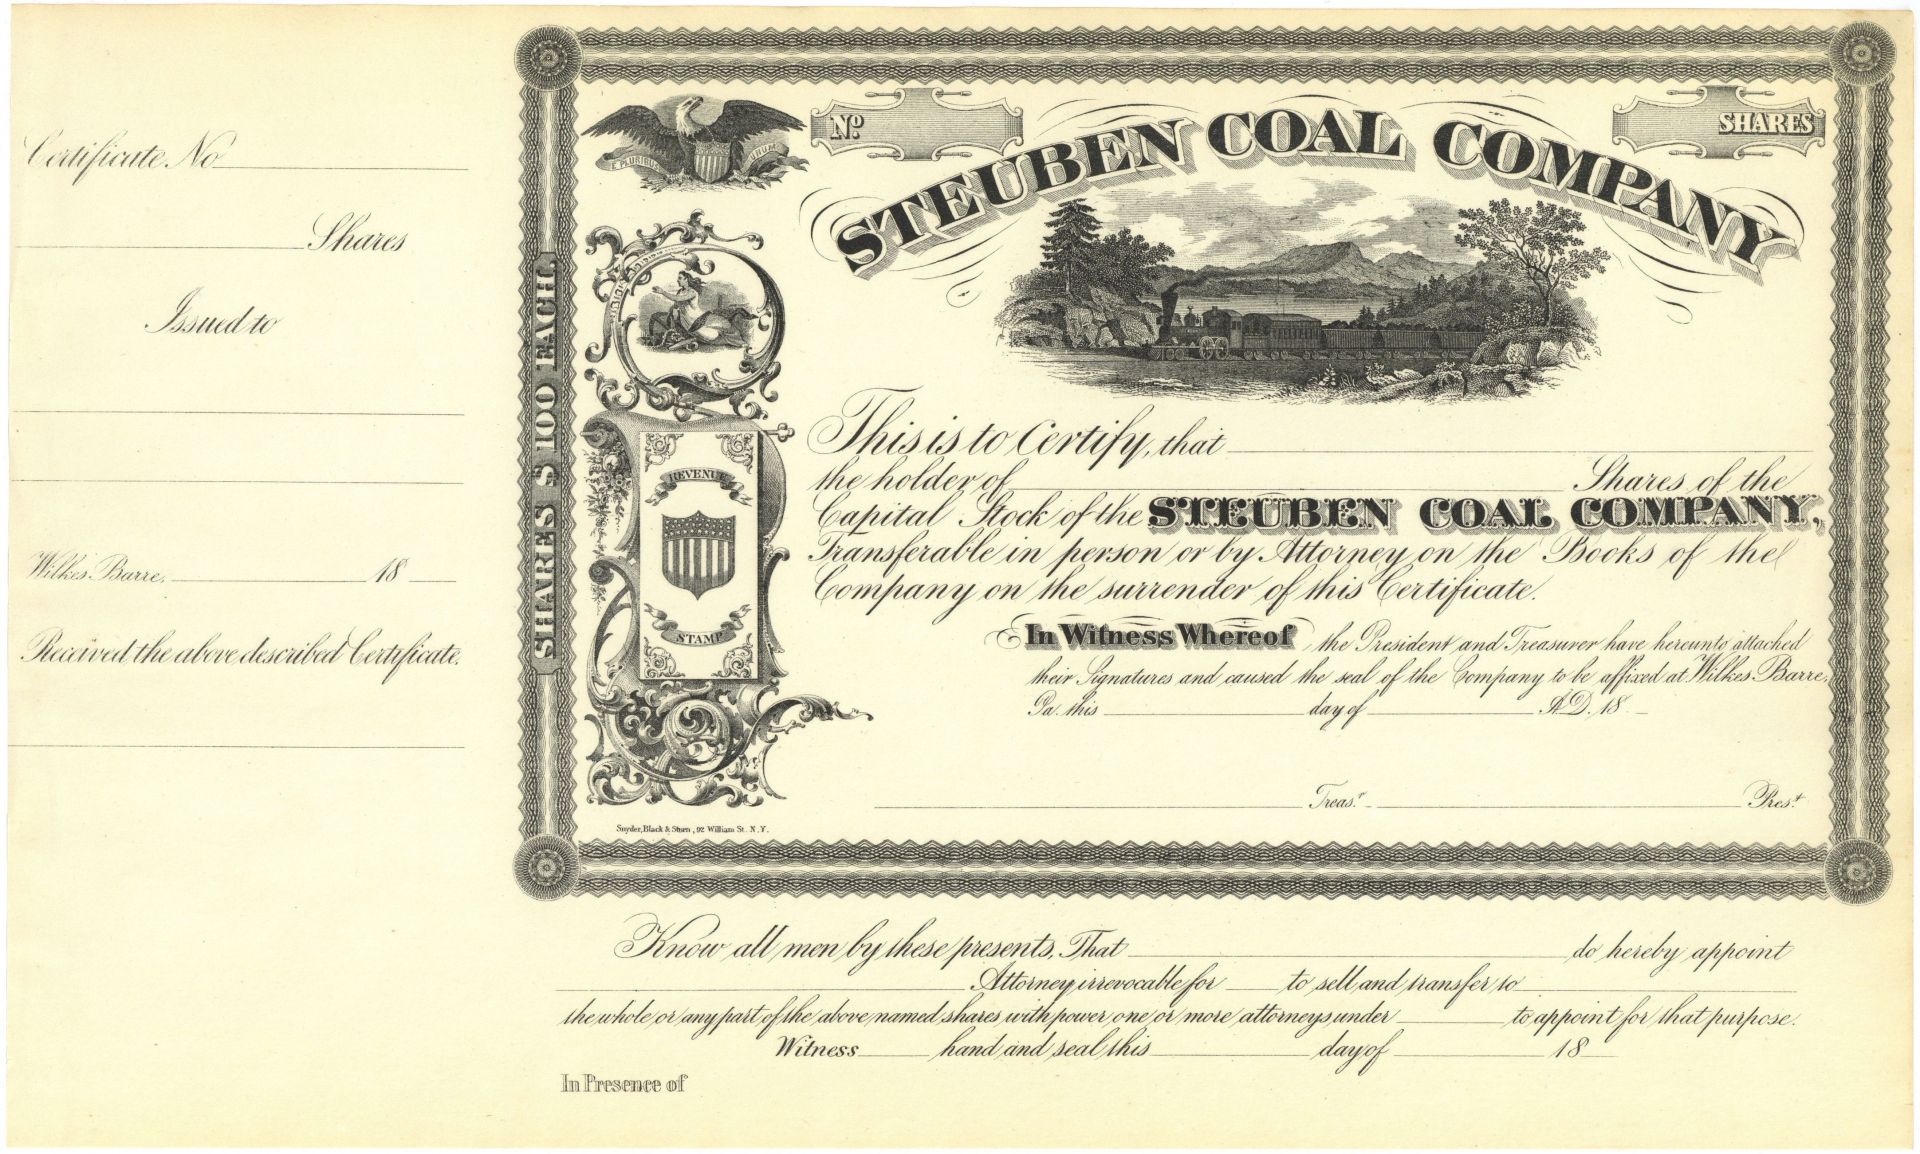 Certificate No
Shares
Issued to
Wilkes Barre, 18
Received the above described Certificate.
SHARES $100 EACH.
E PLURIBUS UNUM
No
SHARES
STEUBEN COAL COMPANY
REVENUE
STAMP
This is to Certify, that
the holder of Shares of the
Capital Stock of the STEUBEN COAL COMPANY,
Transferable in person or by Attorney on the Books of the
Company on the surrender of this Certificate.
In Witness Whereof, the President and Treasurer have hereunto attached
their Signatures and caused the seal of the Company to be affixed at Wilkes Barre,
Pa. this day of A.D. 18
Treas.r Pres.t
Snyder, Black & Sturn, 92 William St. N.Y.
Know all men by these presents, That do hereby appoint
Attorney irrevocable for to sell and transfer to
the whole or any part of the above named shares with power one or more attorneys under to appoint for that purpose.
Witness hand and seal this day of 18
In Presence of